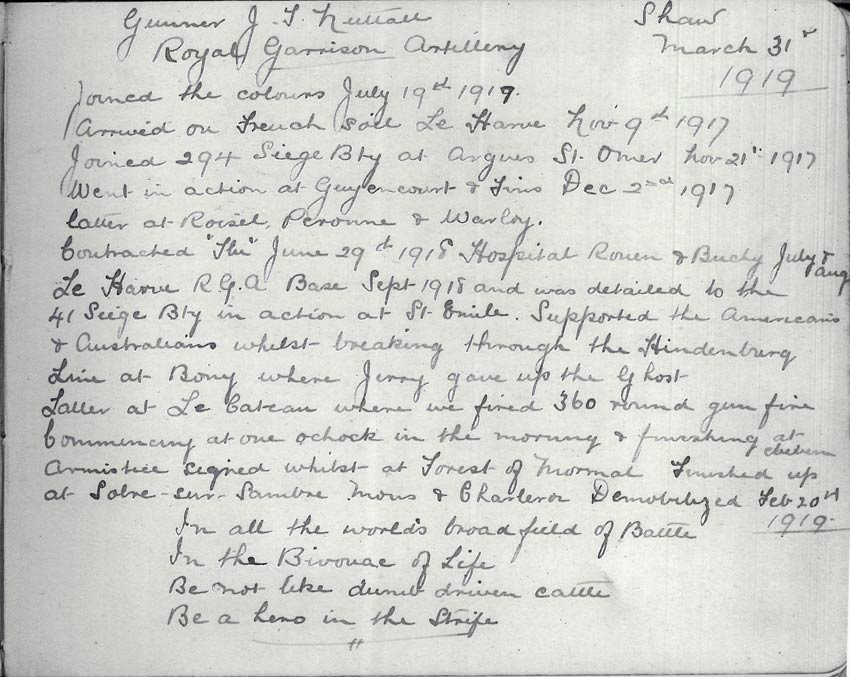 Gunner J. T. Nuttall
Shaw
Royal Garrison Artillery
March 31st
1919
Joined the colours July 19th 1919.
Arrived on French soil Le Harve Nov 9th 1917
Joined 294 Siege Bty at Argues St. Omer Nov 21st 1917
Went in action at Guyencourt & Fins Dec 2nd 1917
latter at Roisel, Peronne & Warloy.
Contracted "Flu" June 29th 1918 Hospital Rouen & Buchy July & Aug
Le Harve R.G.A Base Sept 1918 and was detailed to the
41 Siege Bty in action at St Emile. Supported the Americans
& Australians whilst breaking through the Hindenburg
Line at Bony where Jerry gave up the Ghost
Latter at Le Cateau where we fired 360 round gun fire
Commencing at one oclock in the morning & finishing at eleven
Armistice signed whilst at Forest of Mormal Finished up
at Solre-sur-Sambre Mons & Charleroi Demobilized Feb 20th
1919.
In all the world's broad field of Battle
In the Bivouac of Life
Be not like dumb driven cattle
Be a hero in the Strife